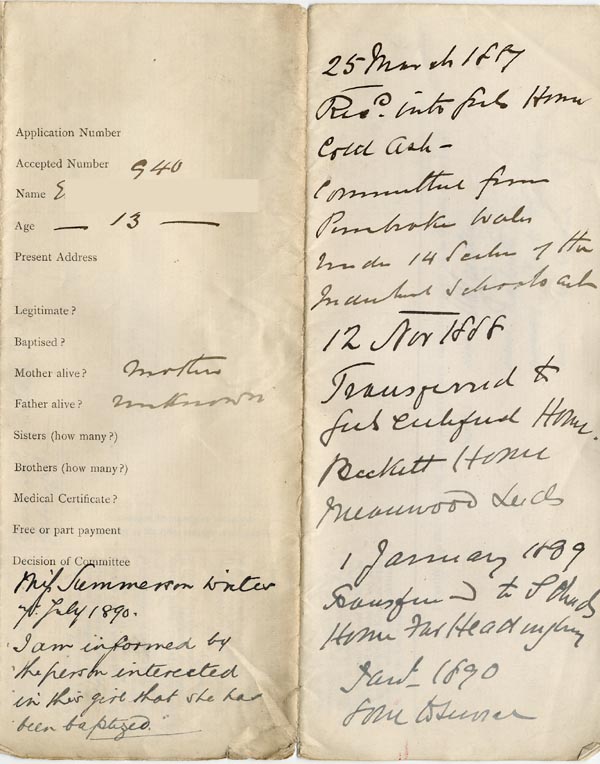 Application Number
Accepted Number 940
Name E
Age — 13 —
Present Address
Legitimate ?
Baptised ?
Mother alive ? Mother
Father alive ? unknown
Sisters (how many ?)
Brothers (how many ?)
Medical Certificate ?
Free or part payment
Decision of Committee
Miss Summerson writes
7 July 1890.
I am informed by
the person interested
in this girl that she has
been baptized."
25 March 1887
Recd. into Girls Home
Cold Ash –
Committed from
Pembroke Wales
under 14 Section of the
Industrial Schools Act
12 Nov 1888
Transferred to
Girls Certified Home.
Beckett Home
Meanwood Leeds
1 January 1889
Transferred to S Chads
Home Far Headingley
Jany 1890
Gone to Service